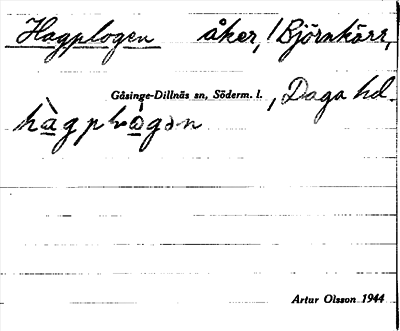 Hagplogen åker, Björnkärr,
Gåsinge-Dillnäs sn, Söderm. l., Daga hd.
Artur Olsson 1944